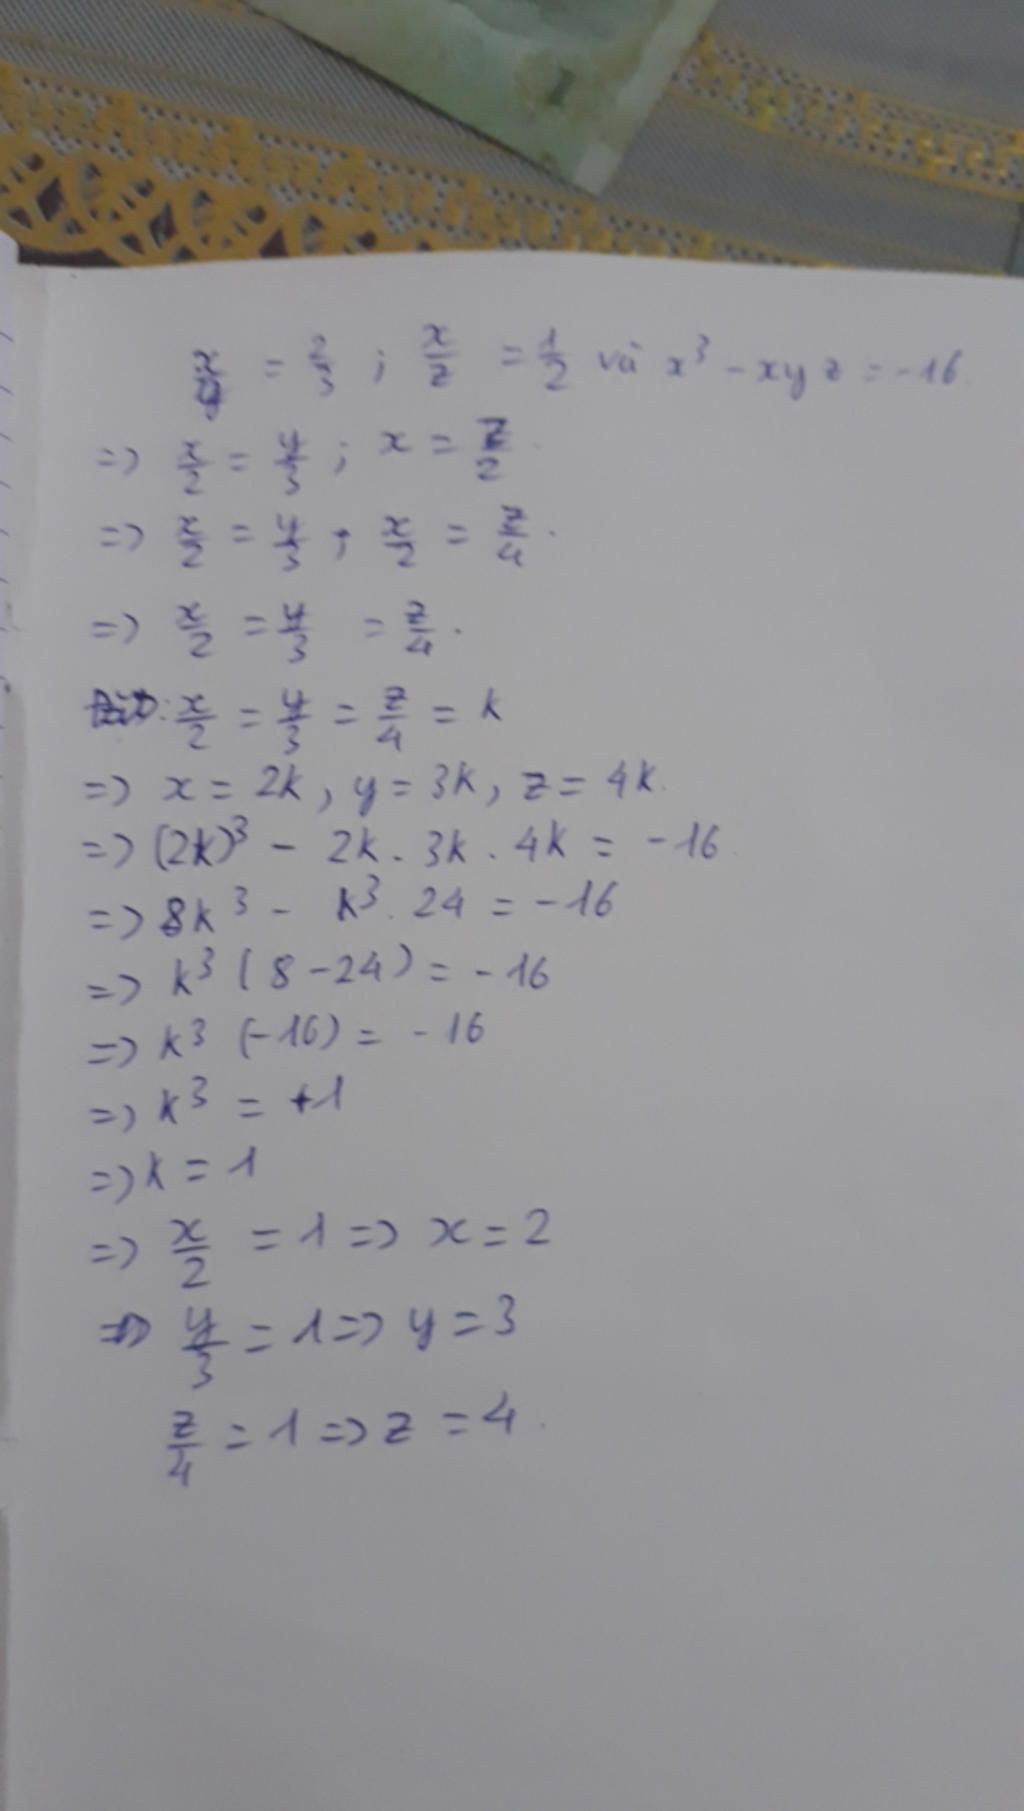 x/y = 2/3 ; x/z = 1/2 và x³ - xyz = -16.
=> x/2 = y/3 ; x = z/2.
=> x/2 = y/3 ; x/2 = z/4.
=> x/2 = y/3 = z/4.
Đặt: x/2 = y/3 = z/4 = k
=> x = 2k, y = 3k, z = 4k.
=> (2k)³ - 2k . 3k . 4k = -16.
=> 8k³ - k³. 24 = -16
=> k³ (8 - 24) = -16
=> k³ (-16) = -16
=> k³ = +1
=> k = 1
=> x/2 = 1 => x = 2
=> y/3 = 1 => y = 3
z/4 = 1 => z = 4.